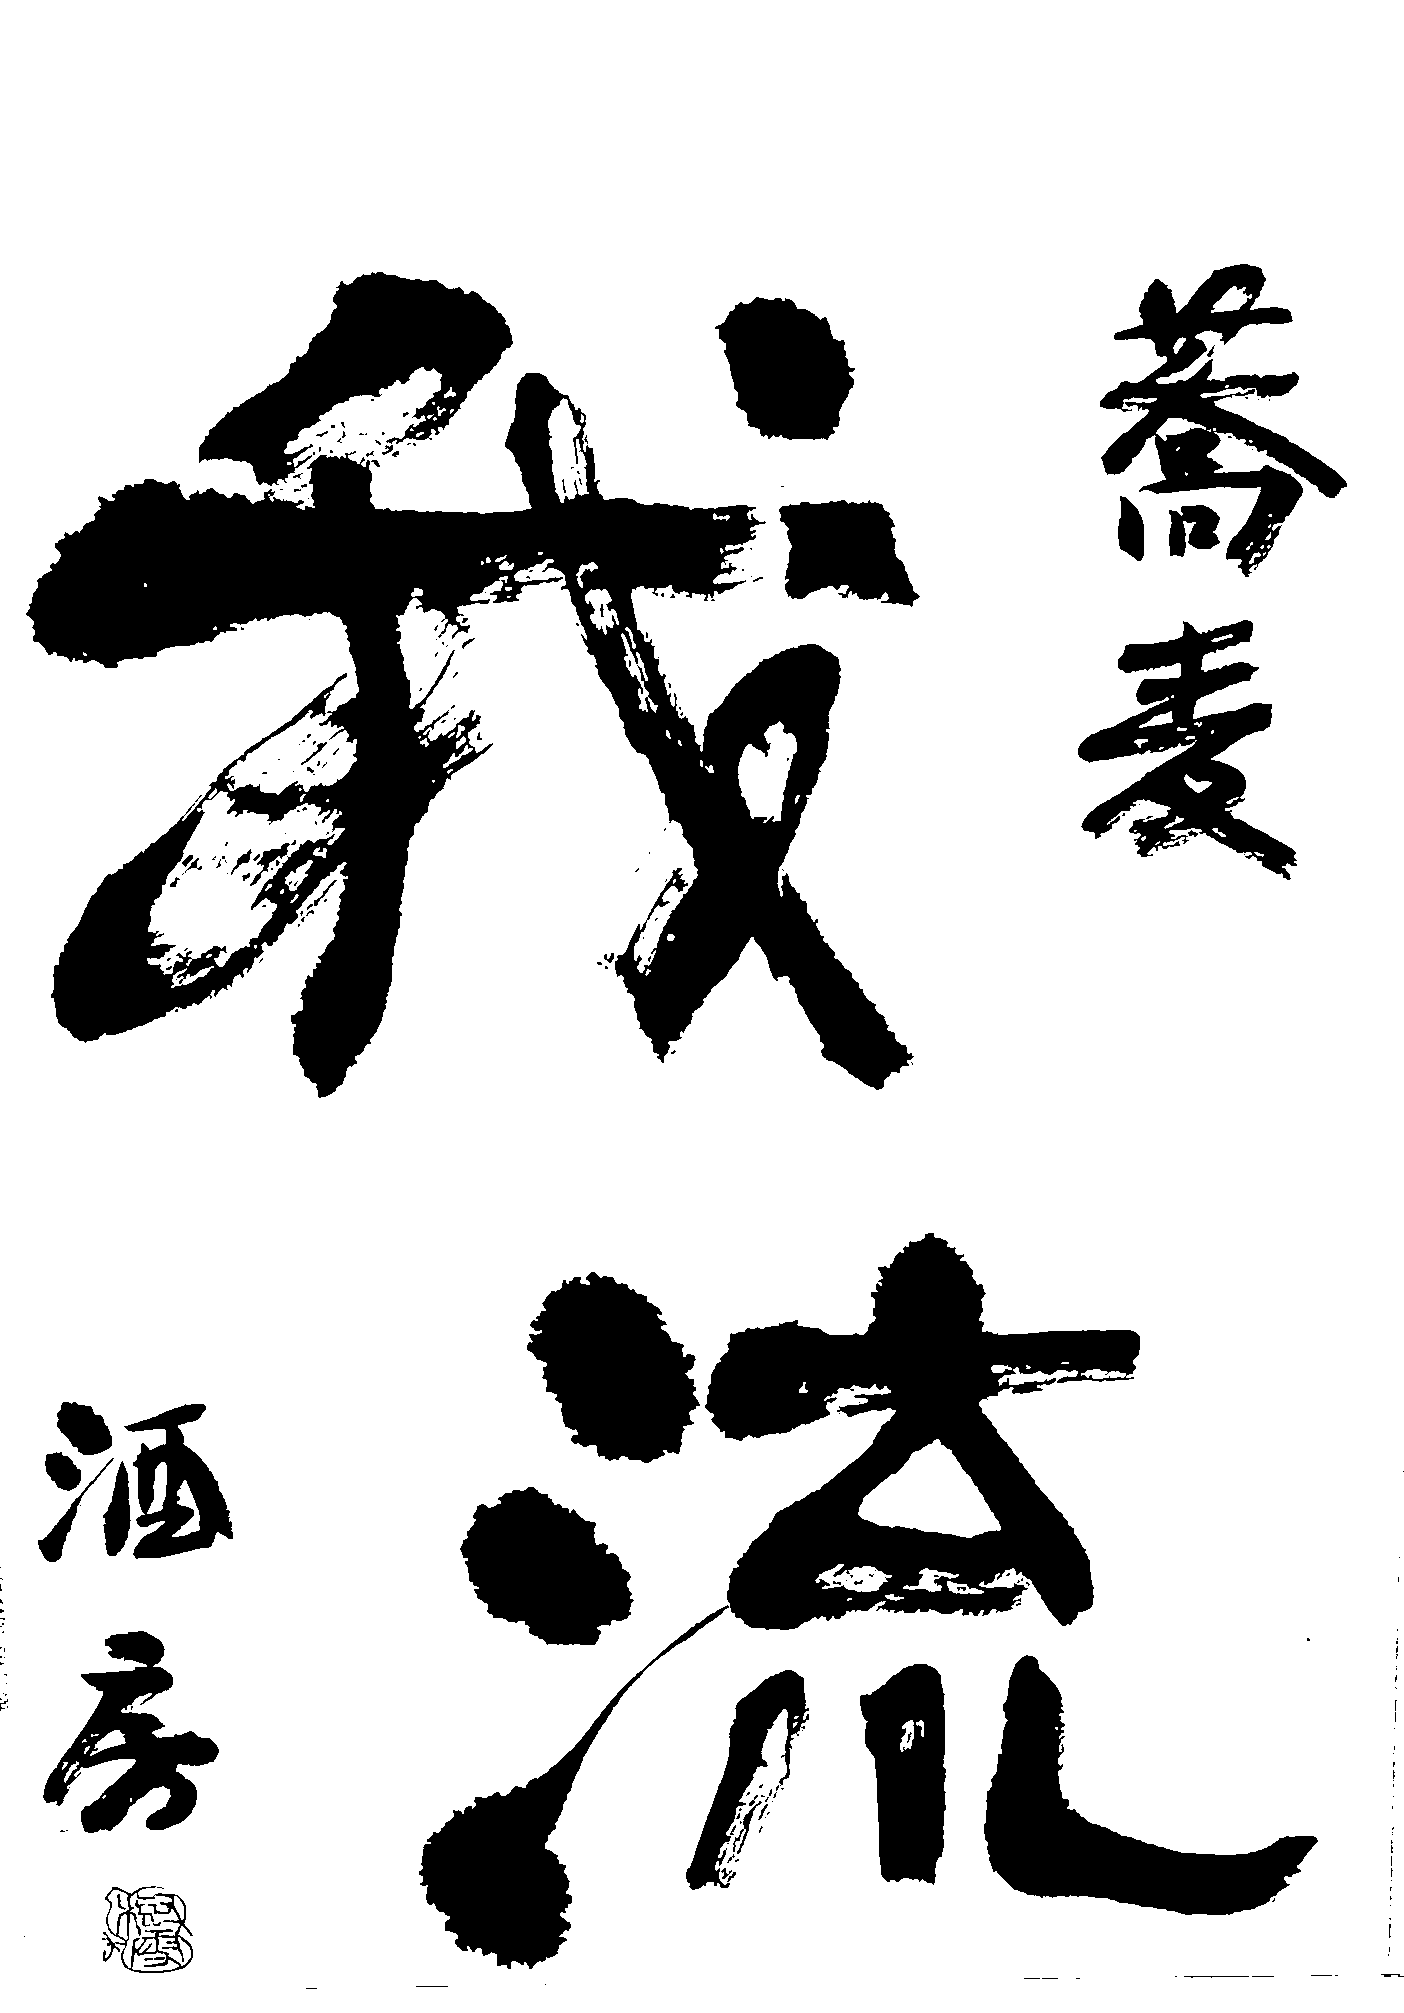 蕎麦
我流
酒房